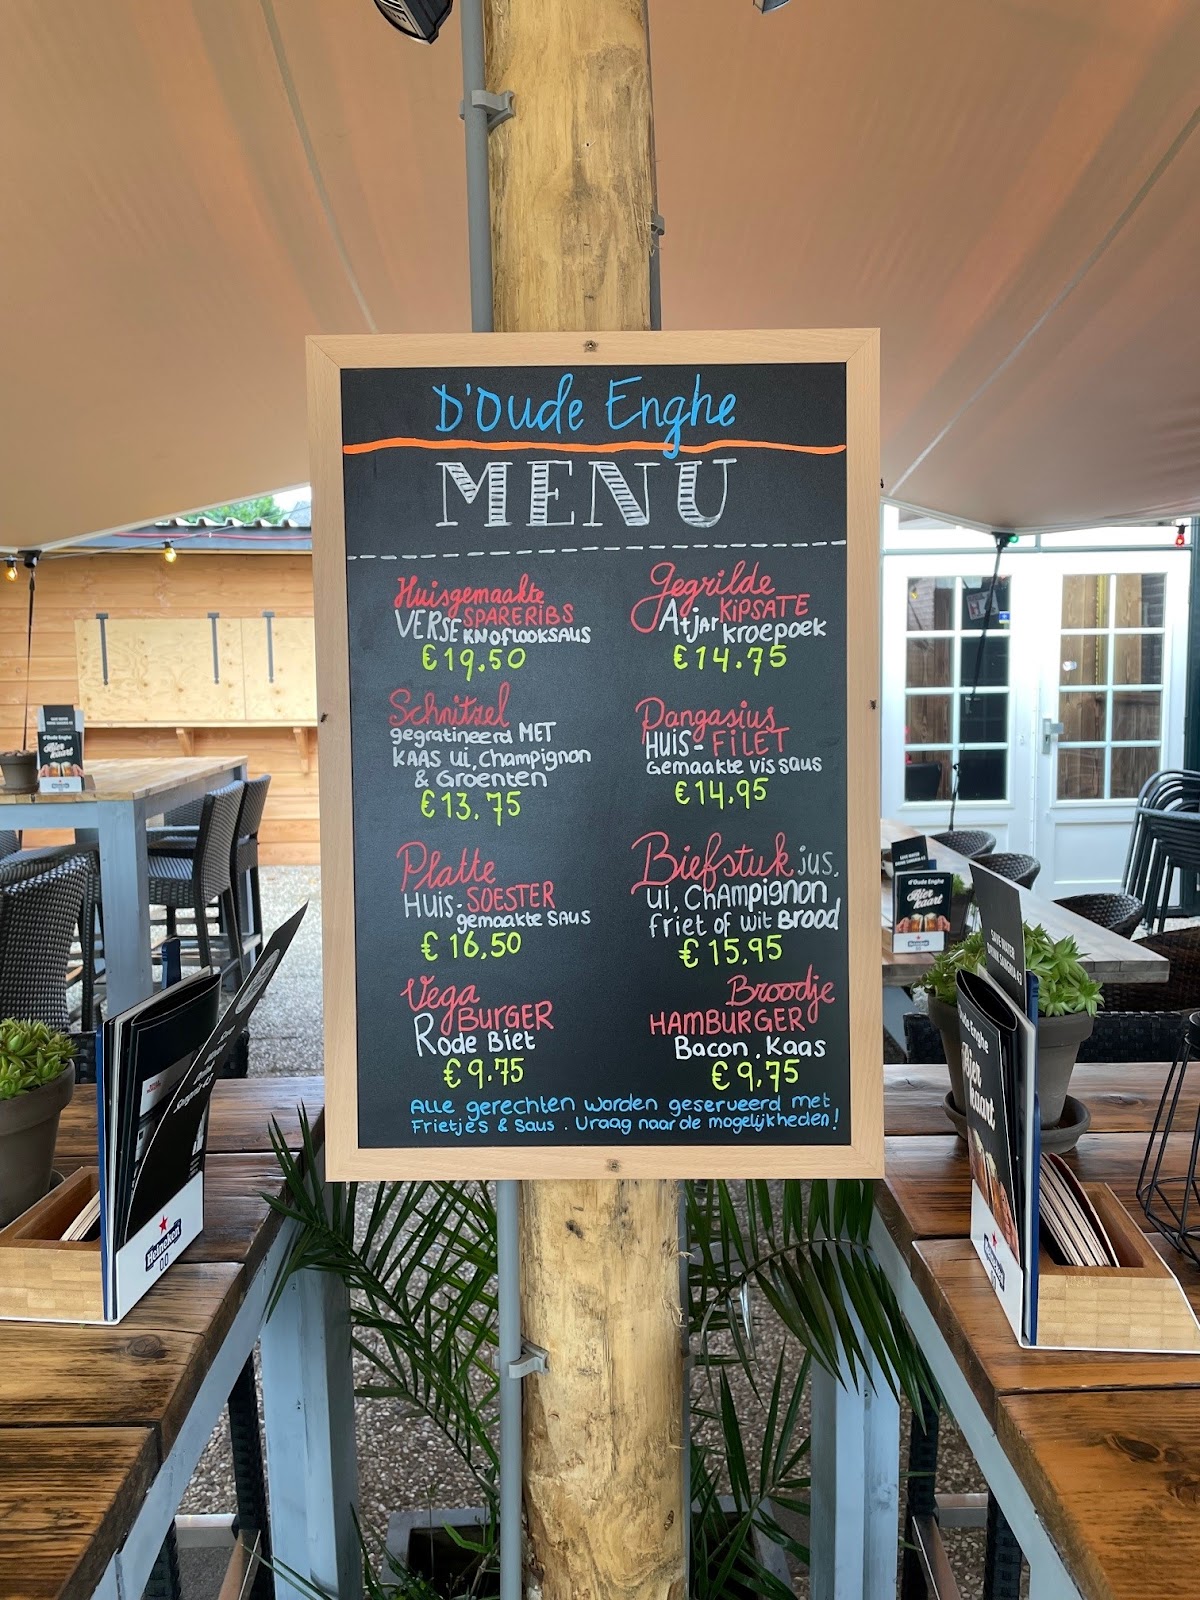 D'Oude Enghe
MENU
Huisgemaakte
SPARERIBS
VERSE KNOFLOOKSAUS
€19,50
Gegrilde
KIPSATE
Atjar Kroepoek
€14.75
Schnitzel
gegratineerd MET
KAAS Ui, Champignon
& Groenten
€13.75
Pangasius
HUIS- FILET
Gemaakte vis saus
€14,95
Platte
HUIS- SOESTER
gemaakte saus
€16,50
Biefstuk jus,
ui, CHAmpignon
friet of wit BROOD
€15,95
Vega
BURGER
Rode Biet
€9.75
Broodje
HAMBURGER
Bacon, Kaas
€9,75
Alle gerechten worden geserveerd met
Frietjes & saus. Vraag naar de mogelijkheden!
SAVE WATER
DRINK SANGRIA 43
d'Oude Enghe
Bier
kaart
Heineken
0.0